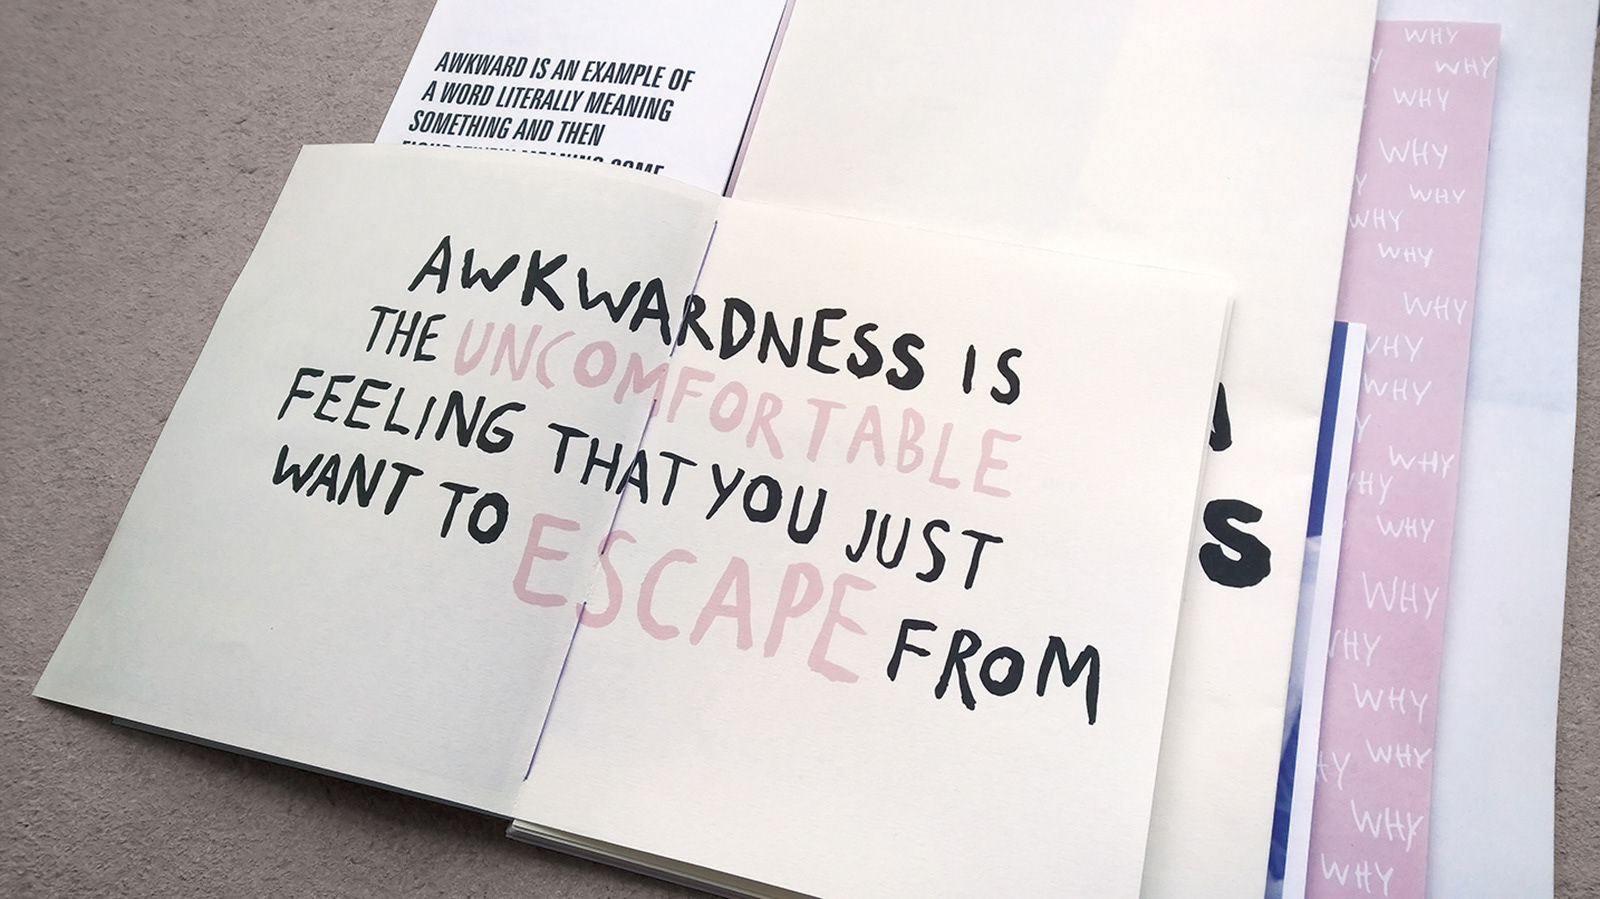 AWKWARD IS AN EXAMPLE OF
A WORD LITERALLY MEANING
SOMETHING AND THEN
AWKWARDNESS IS
THE UNCOMFORTABLE
FEELING THAT YOU JUST
WANT TO ESCAPE FROM
S
WHY
WHY
WHY
WHY
WHY
WHY
WHY
WHY
WHY
WHY
WHY
WHY
WHY
WHY
WHY
WHY
WHY
WHY
WHY